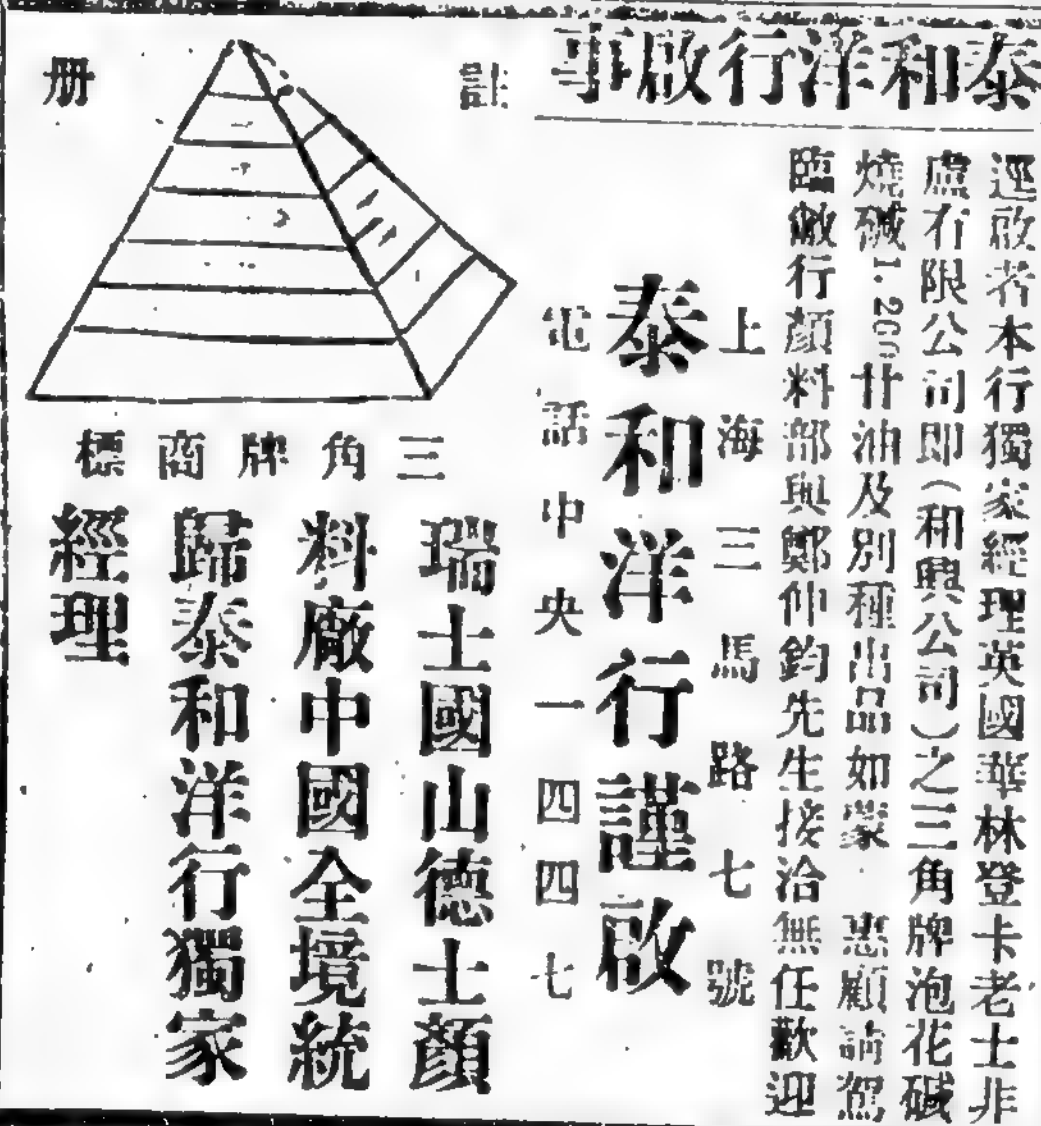 泰和洋行啟事
逕啟者本行獨家經理英國華林登卡老士非
盧有限公司即(和興公司)之三角牌泡花碱
燒碱1.260廿油及別種出品如蒙 惠顧請駕
臨敝行顏料部與鄭仲鈞先生接洽無任歡迎
上海三馬路七號
泰和洋行謹啟
電話中央一四四七
註冊
三角牌商標
瑞士國山德士顏
料廠中國全境統
歸泰和洋行獨家
經理